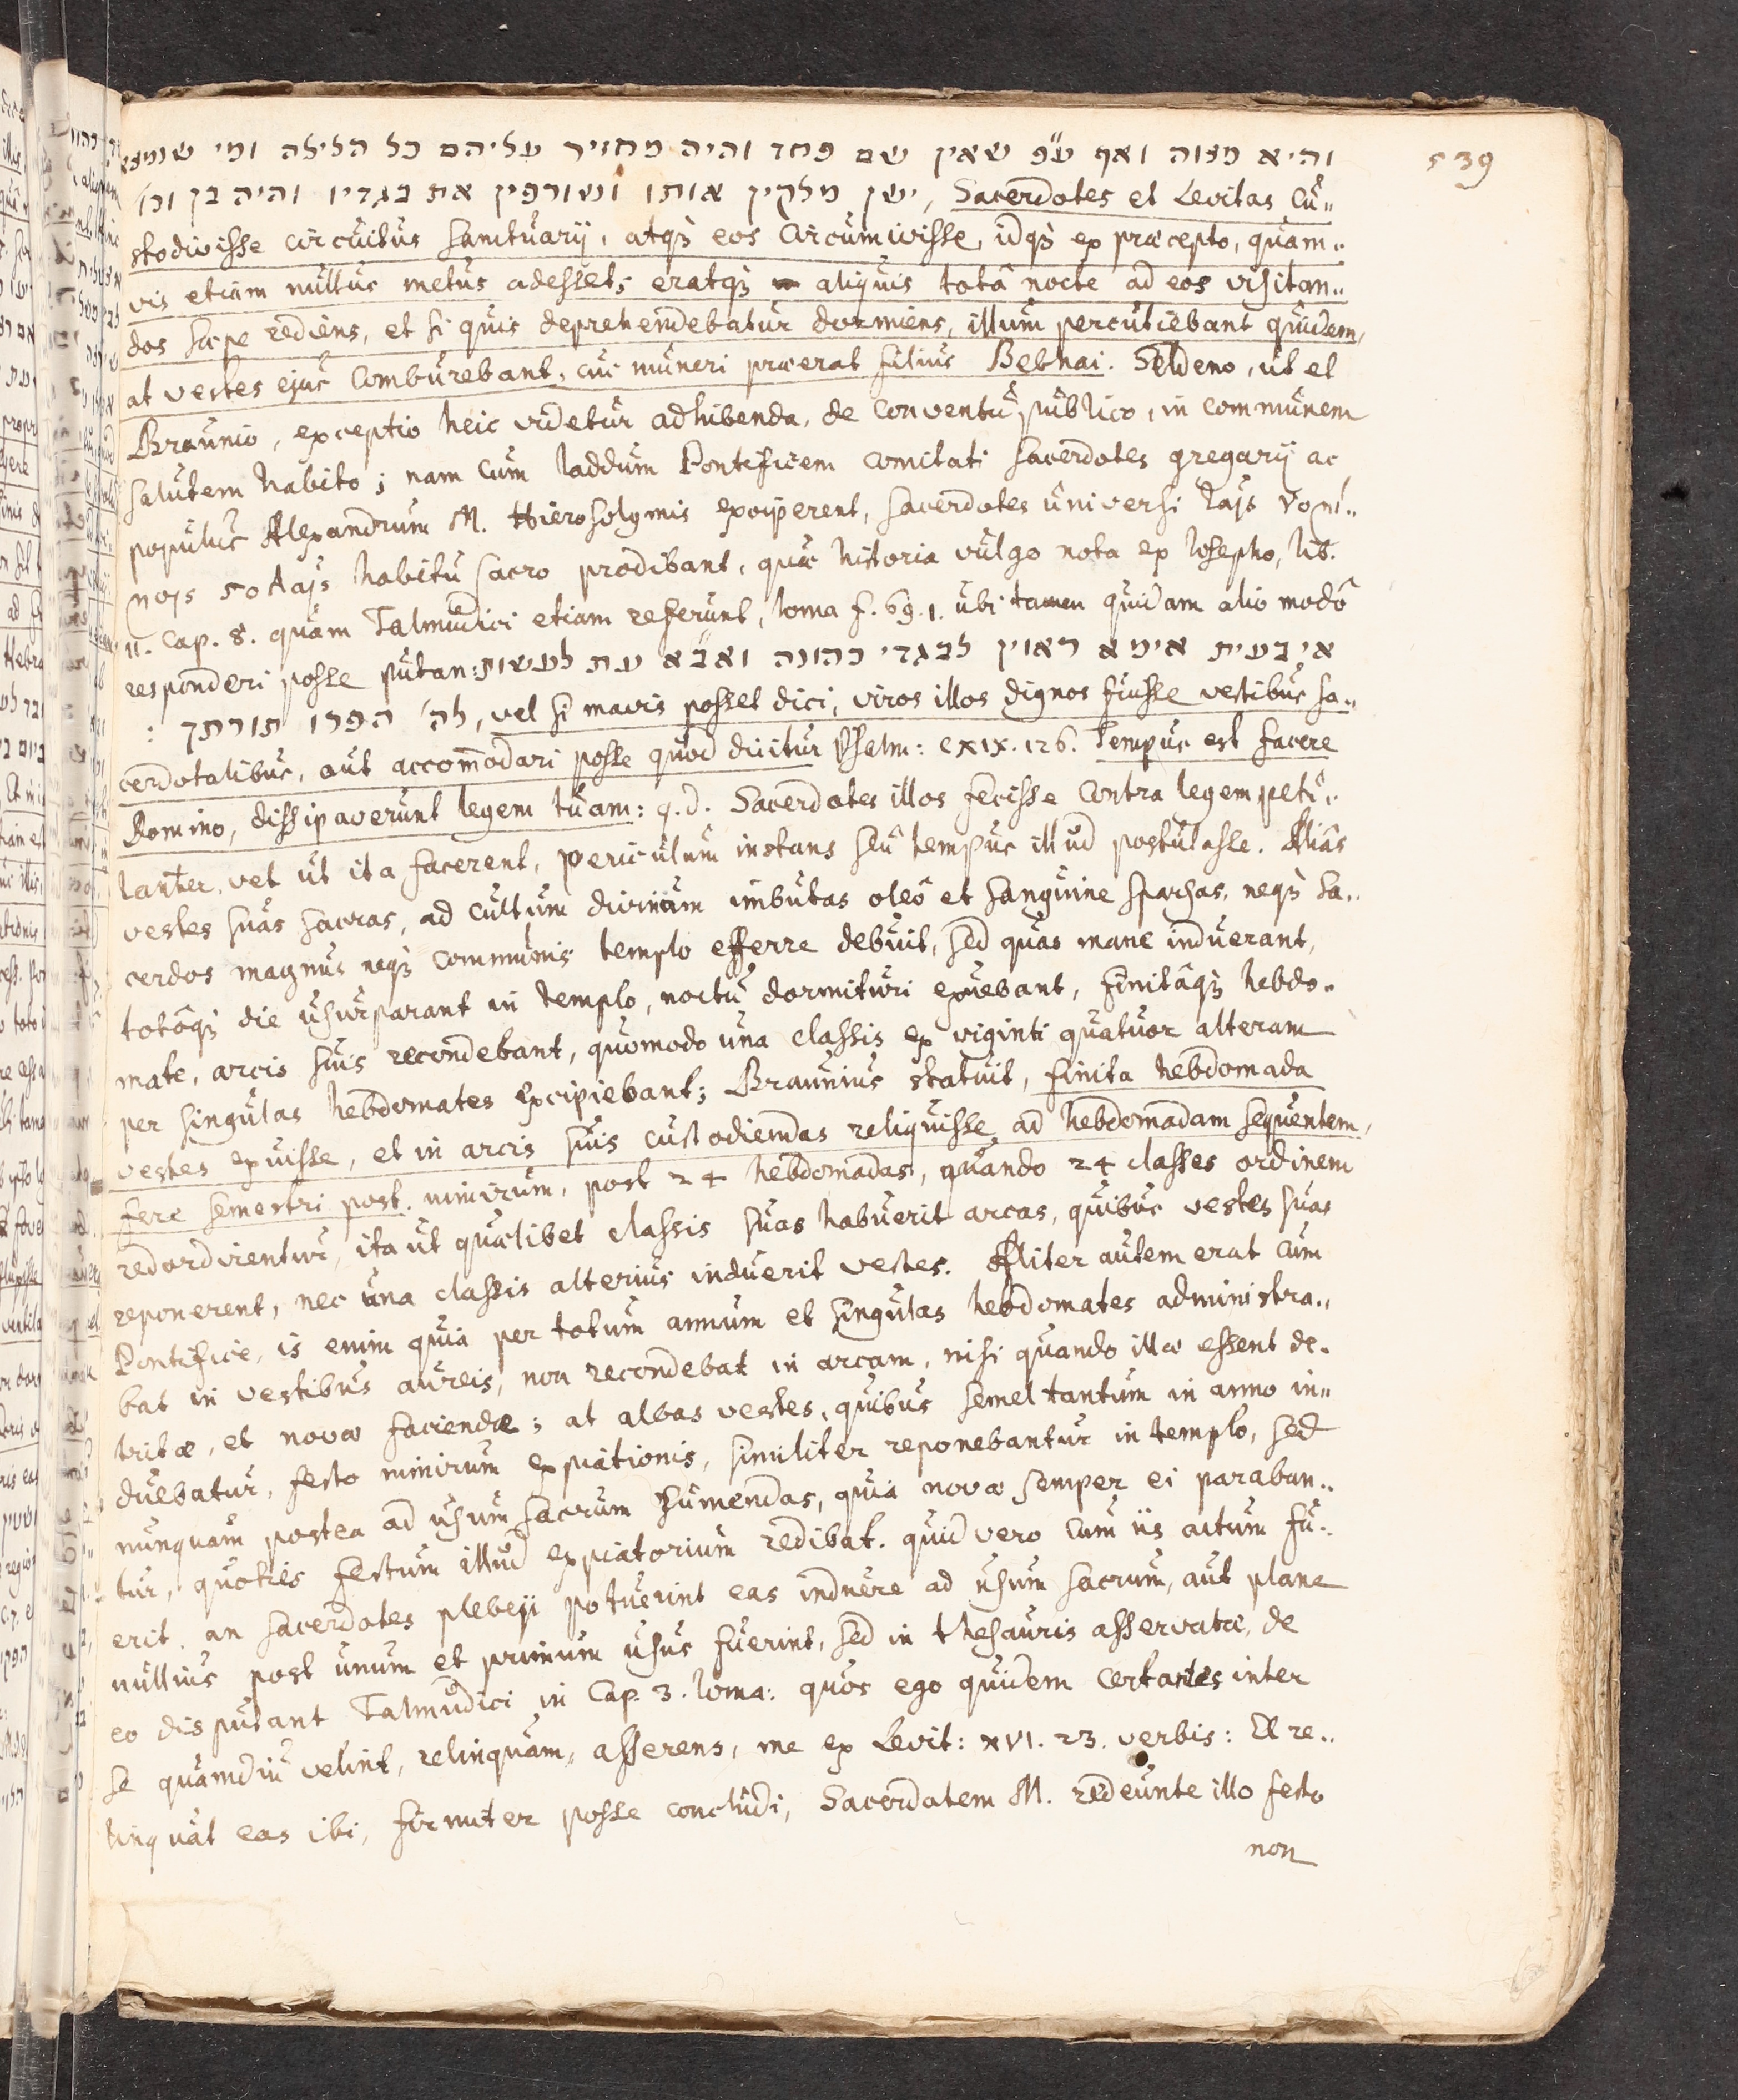 539
והיא מצוה ואף ע״פ שאין שם פחד והיה מחזיר עליהם כל הלילה ומי שנמצא
ישן מלקין אותו ושורפין את בגדיו והיה בן וכו׳, Sacerdotes et Levitas cu„
stodivisse circuitus sanctuarij, atqz eos circumivisse, idqz ex præcepto, quam„
vis etiam nullus metus adesset; eratqz aliquis totâ nocte ad eos visitan„
dos sæpe rediens, et si quis deprehendebatur dormiens, illum percutiebant quidem,
at vestes ejus comburebant, cui muneri præerat filius Bebhai. Seldeno, ut et
Braunio, exceptio heic videtur adhibenda, de conventu publico, in communem
salutem habito; nam cum Iaddum Pontificem comitati sacerdotes gregarij ac
populus Alexandrum M. Hierosolymis exciperent, sacerdotes universi
habitu sacro prodibant, quæ historia vulgo nota ex Iosepho, lib.
11. Cap. 8. quam Talmudici etiam referunt, Ioma f. 69. 1. ubi tamen quidam alio modô
responderi posse putan: אי בעית אימא ראוין לבגדי כהונה ואב״א עת לעשות
: לה׳ הפרו תורתך, vel si mavis posset dici, viros illos dignos fuisse vestibus sa„
cerdotalibus, aut accommodari posse quod dicitur Psalm: CXIX. 126. Tempus est facere
Domino, dissipaverunt legem tuam: q. d. Sacerdotes illos fecisse contra legem petu„
lanter, vel ut ita facerent, periculum instans seu tempus illud postulasse. Aliâs
vestes suas sacras, ad cultum divinum imbutas oleô et sanguine sparsas, neqz sa„
cerdos magnus neqz communis templo efferre debuit, sed quas mane induerant,
totôqz die usurparant in templo, noctu dormituri exuebant, finitâqz hebdo„
mate, arcis suis recondebant, quomodo una classis ex viginti quatuor alteram
per singulas hebdomates excipiebant; Braunius statuit, finita hebdomada
vestes exuisse, et in arcis suis custodiendas reliquisse ad hebdomadam sequentem,
fere semestri post. nimirum, post 24 hebdomadas, quando 24 classes ordinem
redordirentur, ita ut quælibet classis suas habuerit arcas, quibus vestes suas
reponerent, nec una classis alterius induerit vestes. Aliter autem erat cum
Pontifice, is enim quia per totum annum et singulas hebdomates administra„
bat in vestibus aureis, non recondebat in arcam, nisi quando illæ essent de„
tritæ, et novæ faciendæ; at albas vestes, quibus semel tantum in anno in„
duebatur, festo nimirum expiationis, similiter reponebantur in templo, sed
nunquam postea ad usum sacrum sumendas, quia novæ semper ei paraban„
tur, quoties festum illud expiatorium redibat. quid vero cum iis actum fu„
erit, an sacerdotes plebeji potuerint eas induere ad usum sacrum, aut plane
nullius post unum et primum usus fuerint, sed in thesauris asservatæ, de
eo disputant Talmudici in Cap. 3. Ioma: quos ego quidem certantes inter
se quamdiu velint, relinquam, asserens, me ex Levit: XVI. 23. verbis: Et re„
linquat eas ibi, firmiter posse concludi, Sacerdotem M. redeunte illo festo
non